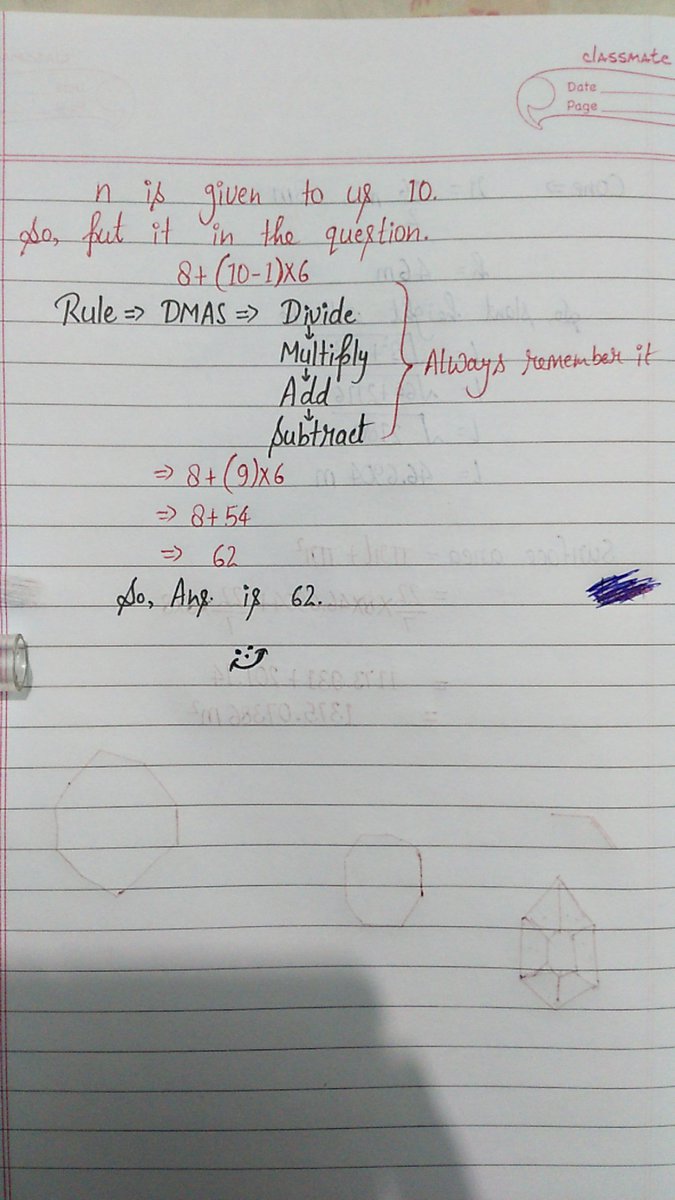 classmate
Date
Page
n is given to us 10.
So, put it in the question.
8+(10-1)x6
Rule => DMAS => Divide
↓
Multiply
↓
Add
↓
Subtract
Always remember it
=> 8+(9)x6
=> 8+54
=> 62
So, Ans. is 62.